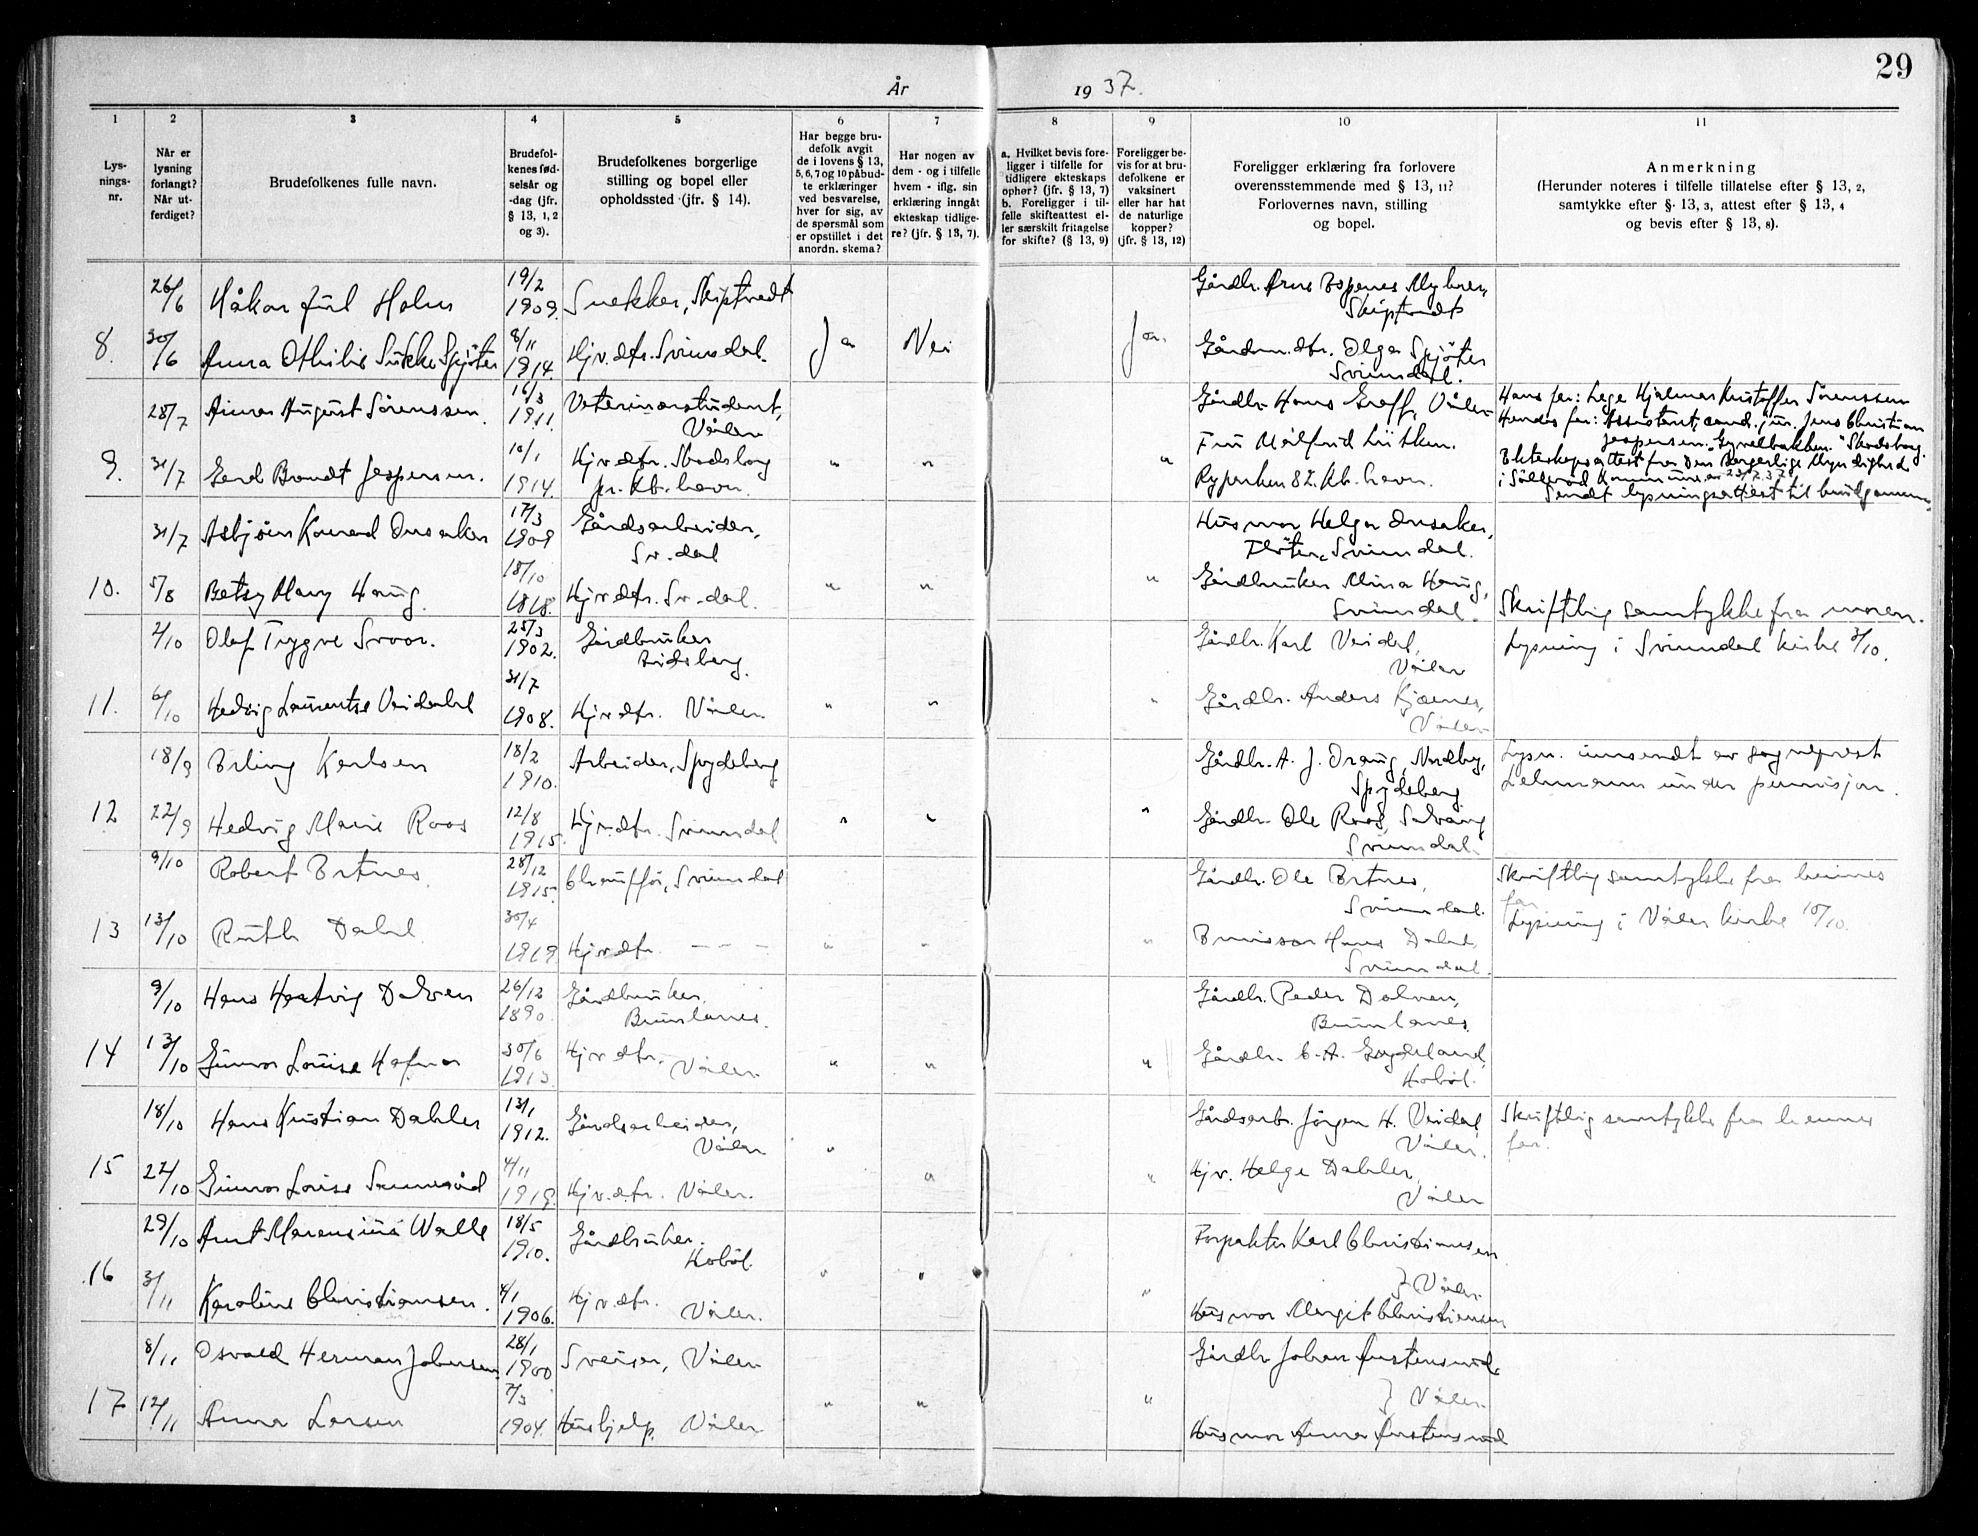 29
År 1937.
1 2 3 4 5 6 7 8 9 10 11
Lysnings-nr.
Når er lysning forlangt? Når utferdiget?
Brudefolkenes fulle navn.
Brudefolkenes fødselsår og -dag (jfr. § 13, 1, 2 og 3).
Brudefolkenes borgerlige stilling og bopel eller opholdssted (jfr. § 14).
Har begge brudefolk avgit de i lovens § 13, 5, 6, 7 og 10 påbudte erklæringer ved besvarelse, hver for sig, av de spørsmål som er opstillet i det anordn. skema?
Har nogen av dem - og i tilfelle hvem - iflg. sin erklæring inngått ekteskap tidligere? (jfr. § 13, 7).
a. Hvilket bevis foreligger i tilfelle for tidligere ekteskaps ophør? (jfr. § 13, 7) b. Foreligger i tilfelle skifteattest eller særskilt fritagelse for skifte? (§ 13, 9)
Foreligger bevis for at brudefolkene er vaksinert eller har hat de naturlige kopper? (jfr. § 13, 12)
Foreligger erklæring fra forlovere overensstemmende med § 13, 11? Forlovernes navn, stilling og bopel.
Anmerkning (Herunder noteres i tilfelle tillatelse efter § 13, 2, samtykke efter §· 13, 3, attest efter § 13, 4 og bevis efter § 13, 8).
26/6 Håkon Juul Holm 19/2 1909. Snekker, Skiptvedt Gårdbr. Arne Espenes Myhrer, Skiptvedt
8. 30/6 Anna Othilie Spjøter 8/11 1914. Hjv. dtr. Svinndal. Ja Nei Ja. Gårdm. dtr. Olga Spjøter Svinndal.
28/7 Einar August Sörenssen. 16/3 1911. Veterinærstudent, Våler Gårdbr. Hans Graff, Våler Hans far: Lege Hjalmar Kristoffer Sörenssen
Hendes far: Assistent, cand. jur. Jens Christian Jespersen. "Skodsborg.
9. 31/7 Gerd Brandt Jespersen. 10/1 1914. Hjv. dtr. Skodsborg pr. Kb.havn. " " " Fru Lütken. Ryparken 82. Kb.havn. Ekteskapsattest fra Den Borgerlige Myndighed i Sölleröd Kommune, av 23/7.37.
Sendt lysningsattest til brudgommen.
31/7 Asbjörn Konrad Onsaker 17/3 1909 Gårdsarbeider, Sv.dal Husmor Helga Onsaker, Fløter, Svinndal.
10. 5/8 Betsy Mary Haug. 18/10 1918. Hjv. dtr. Sv.dal. " " " Gårdbruker Mina Haug, Svinndal. Skriftlig samtykke fra moren.
2/10 Olaf Trygve Svoor. 25/3 1902. Gårdbruker Eidsberg. Gårdbr. Karl Veidal, Våler Lysning i Svinndal kirke 3/10.
11. 6/10 Hedvig Laurentse Veidahl 31/7 1908. Hjv. dtr. Våler. " " " Gårdbr. Anders Kjærnes, Våler.
18/9 Erling Karlsen 18/2 1910. Arbeider, Spydeberg Gårdbr. A. J. Draug, Nordby, Spydeberg. Lysn. innsendt av sogneprest Lehmann under permisjon.
12 22/9 Hedvig Marie Roos 12/8 1915. Hjv. dtr. Svinndal " " " Gårdbr. Ole Roos, Solvang Svinndal.
9/10 Robert Ertnes. 28/12 1915. Chauffør, Svinndal Gårdbr. Ole Ertnes, Svinndal. Skriftlig samtykke fra hennes far
13 13/10 Ruth Dahl 30/4 1919. Hjv. dtr. - - - " " " Hans Dahl, Svinndal. Lysning i Våler kirke 10/10.
9/10 Hans Hartvig Dalven 26/12 1890. Gårdbruker, Brunlanes. Gårdbr. Peder Dolven, Brunlanes.
14 13/10 Gunvor Louise Hafnor 30/6 1913. Hjv. dtr. Våler. " " " Gårdbr. C. A. Hobøl.
18/10 Hans Kristian Dahler 13/1 1912. Gårdsarbeider, Våler Gårdsarb. Jörgen H. Veidal Våler. Skriftlig samtykke fra hennes far.
15 22/10 Gunvor Lovise Sannesöd 4/11 1919. Hjv. dtr. Våler. " " " Hjv. Helga Dahler, Våler
29/10 Arnt Marensius Walle 18/5 1910. Gårdbruker. Hobøl. Forpakter Karl Christiansen
16 3/11 Karoline Christiansen. 4/1 1906. Hjv. dtr. Våler. " " " } Våler.
Husmor Margit Christiansen
8/11 Osvald Herman Johansen. 28/1 1900 Sveiser, Våler Gårdbr. Johan Justensrud.
17 12/11 Anna Larsen 7/3 1904. Hushjelp, Våler " " " } Våler.
Husmor Anna Justensrud